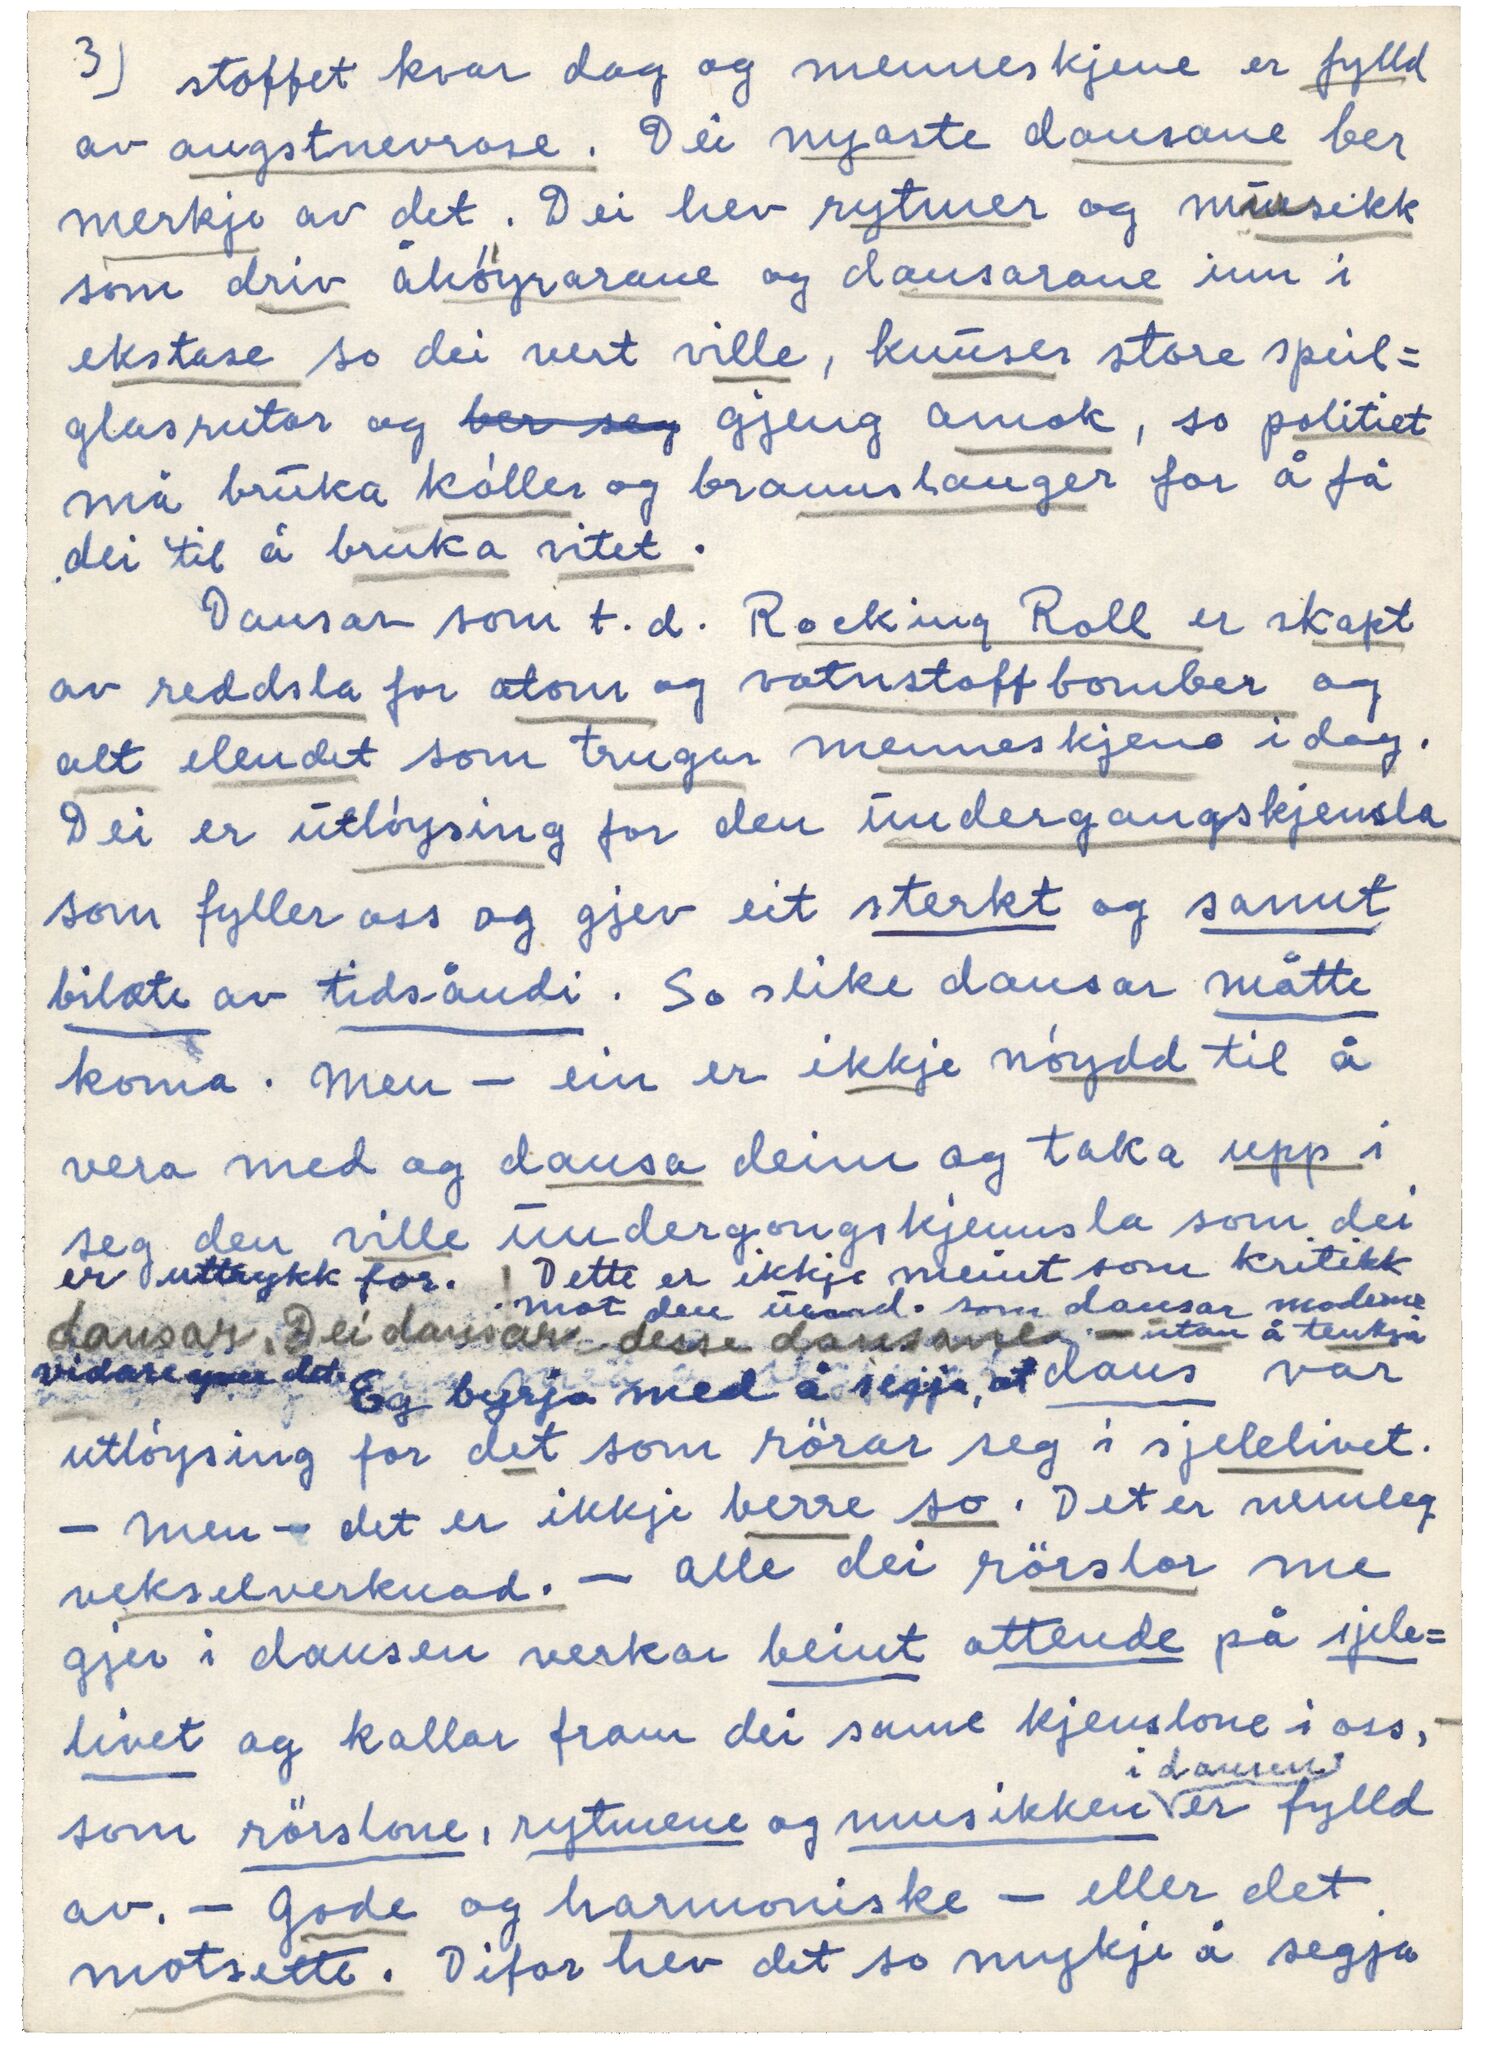 3) stoffet kvar dag og menneskjene er fylld
av angstnevrose. Dei nyaste dansane ber
merkje av det. Dei hev rytmer og musikk
som driv åhöyrarane og dansarane inn i
ekstase so dei vert ville, knuser store speil=
glasrutor og ber seg gjeng amok, so politiet
må bruka kóller og brannslanger for å få
dei til å bruka vitet.
Dansar som t.d. Rocking Roll er skapt
av reddsla for atom og vatnstoffbomber og
alt elendet som trugar menneskjene i dag.
Dei er utlóysing for den undergangskjensla
som fyller oss og gjev eit sterkt og sannt
bilæte av tidsåndi. So slike dansar måtte
koma. Men – ein er ikkje nóydd til å
vera med og dansa deim og taka upp i
seg den ville undergongskjennsla som dei
er uttrykk for. Dette er ikkje meint som kritikk
mot den som dansar moderne
dansar. Dei dansar desse dansane – utan å tenkja
vidare yver det. Eg byrja med å segja, at dans var
utlóysing for det som rörar seg i sjelelivet.
– Men – det er ikkje berre so. Det er nemleg
vekselverknad. – Alle dei rörslor me
gjer i dansen verkar beint attende på sjele=
livet og kallar fram dei same kjenslone i oss, –
som rörslone, rytmene og musikken i dansen er fylld
av. – Gode og harmoniske – eller det
motsette. Difor hev det so mykje å segja